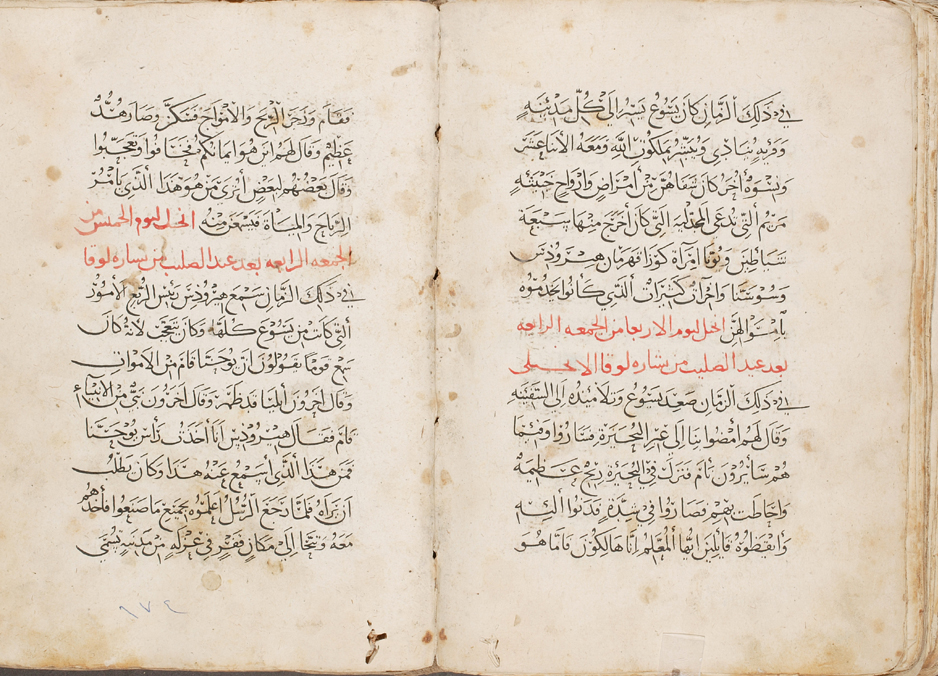 في ذلك الزمان كان يسوع يسير الي كل مدينه
وقريه ينادي ويبشر بملكوت الله ومعه الاثنا عشر
ونسوة اخر كان شفاهن من امراض وارواح خبيثه
مريم التي تدعي المجدليه التي كان اخرج منها سبعة
شياطين ويونا امرآة كوزا قهرمان هيرودس
وسوسنا واخرات كثيرات الذين كانوا يخدموه
باموالهن انجيل يوم الاربعا من الجمعه الرابعه
بعد عيد الصليب من بشاره لوقا الانجيلي
في ذلك الزمان صعد يسوع وتلاميذه الي السفينه
وقال لهم امضوا بنا الي عبر البحيرة فساروا وفيما
هم سائرون نام فنزلت في البحيرة ريح عظيمة
واحاطت بهم فصاروا في شدة فدنوا اليه
وايقظوه قائلين ايها المعلم اننا هالكون فاما هو
فقام وزجر الريح والامواج فسكن وصار هدو
عظيم وقال لهم اين هو ايمانكم فخافوا وتعجبوا
وقال بعضهم لبعض اتري من هو هذا الذي يامر
الرياح والمياة فيسمعون منه انجيل يوم الخميس من
الجمعه الرابعه بعد عيد الصليب من بشاره لوقا
في ذلك الزمان سمع هيرودس رئيس الربع الامور
التي كانت من يسوع كلها وكان يتعجب لانه كان
سمع قوما يقولون ان يوحنا قام من الاموات
وقال اخرون ايليا قد ظهر وقال اخرون نبي من الانبياء
قام فقال هيرودس انا اخذت راس يوحنا
فمن هذا الذي اسمع عنه هذا وكان يطلب
ان يراه فلما رجع الرسل اعلموه بجميع ما صنعوا فاخذهم
معه وتنحا الي مكان قفر في عزله من مدينه تسمي
٩٧٤